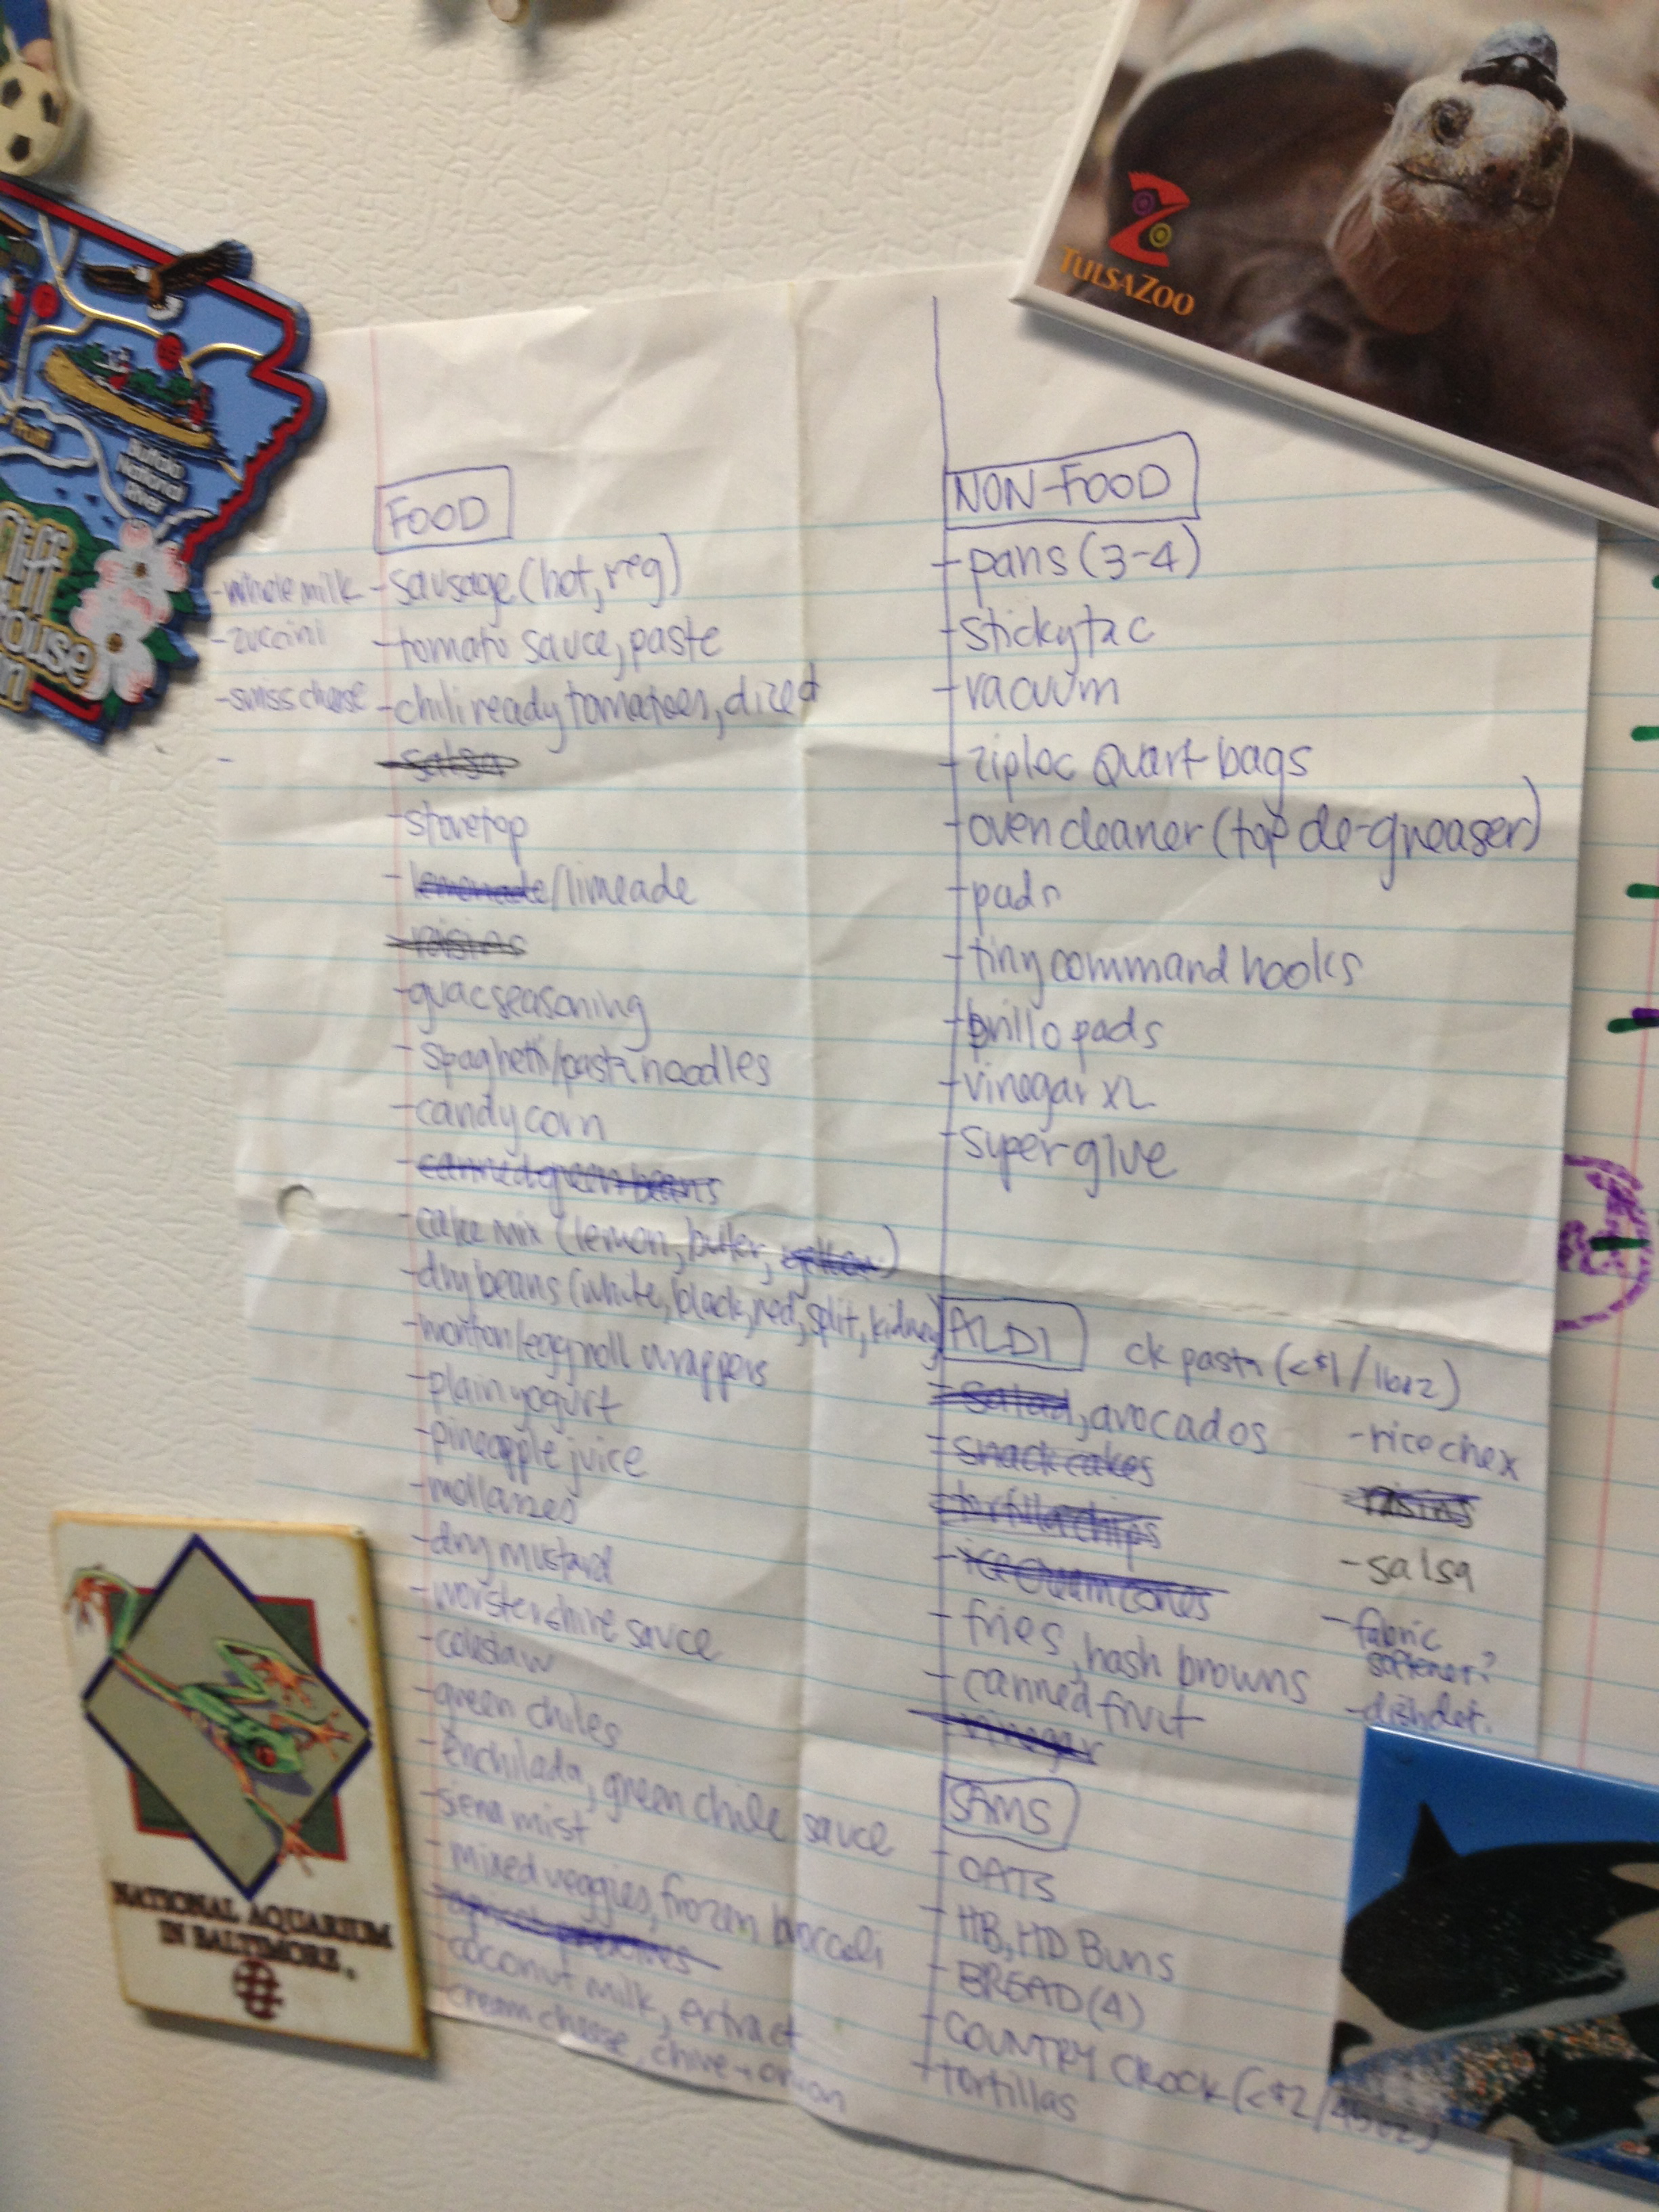 TULSA ZOO
Buffalo
National
River
FOOD
-whole milk
-zuccini
-swiss cheese
-
-sausage (hot, reg)
-tomato sauce, paste
-chili ready tomatoes, diced
-salsa
-stovetop
-lemonade/limeade
-raisins
-guac seasoning
-spaghetti/pasta noodles
-candy corn
-canned green beans
-cake mix (lemon, butter, yellow)
-dry beans (white, black, red, split, kidney)
-wonton/eggroll wrappers
-plain yogurt
-pineapple juice
-mollasses
-dry mustard
-worstershire sauce
-coleslaw
-green chiles
-enchilada, green chile sauce
-siera mist
-mixed veggies, frozen broccoli
-apricot preserves
-coconut milk, extract
-cream cheese, chive + onion
NON-FOOD
-pans (3-4)
-sticky tac
-vacuum
-ziploc quart bags
-oven cleaner (top de-greaser)
-pads
-tiny command hooks
-brillo pads
-vinegar XL
-super glue
ALDI
ck pasta (<$1/16oz)
-salad, avocados
-snack cakes
-tortilla chips
-ice cream cones
-fries, hash browns
-canned fruit
-vinegar
-rice chex
-raisins
-salsa
-fabric
softener?
-dish det.
SAMS
-OATS
-HB, HD BUNS
-BREAD (4)
-COUNTRY CROCK (<$2/45oz)
-tortillas
NATIONAL AQUARIUM
IN BALTIMORE.